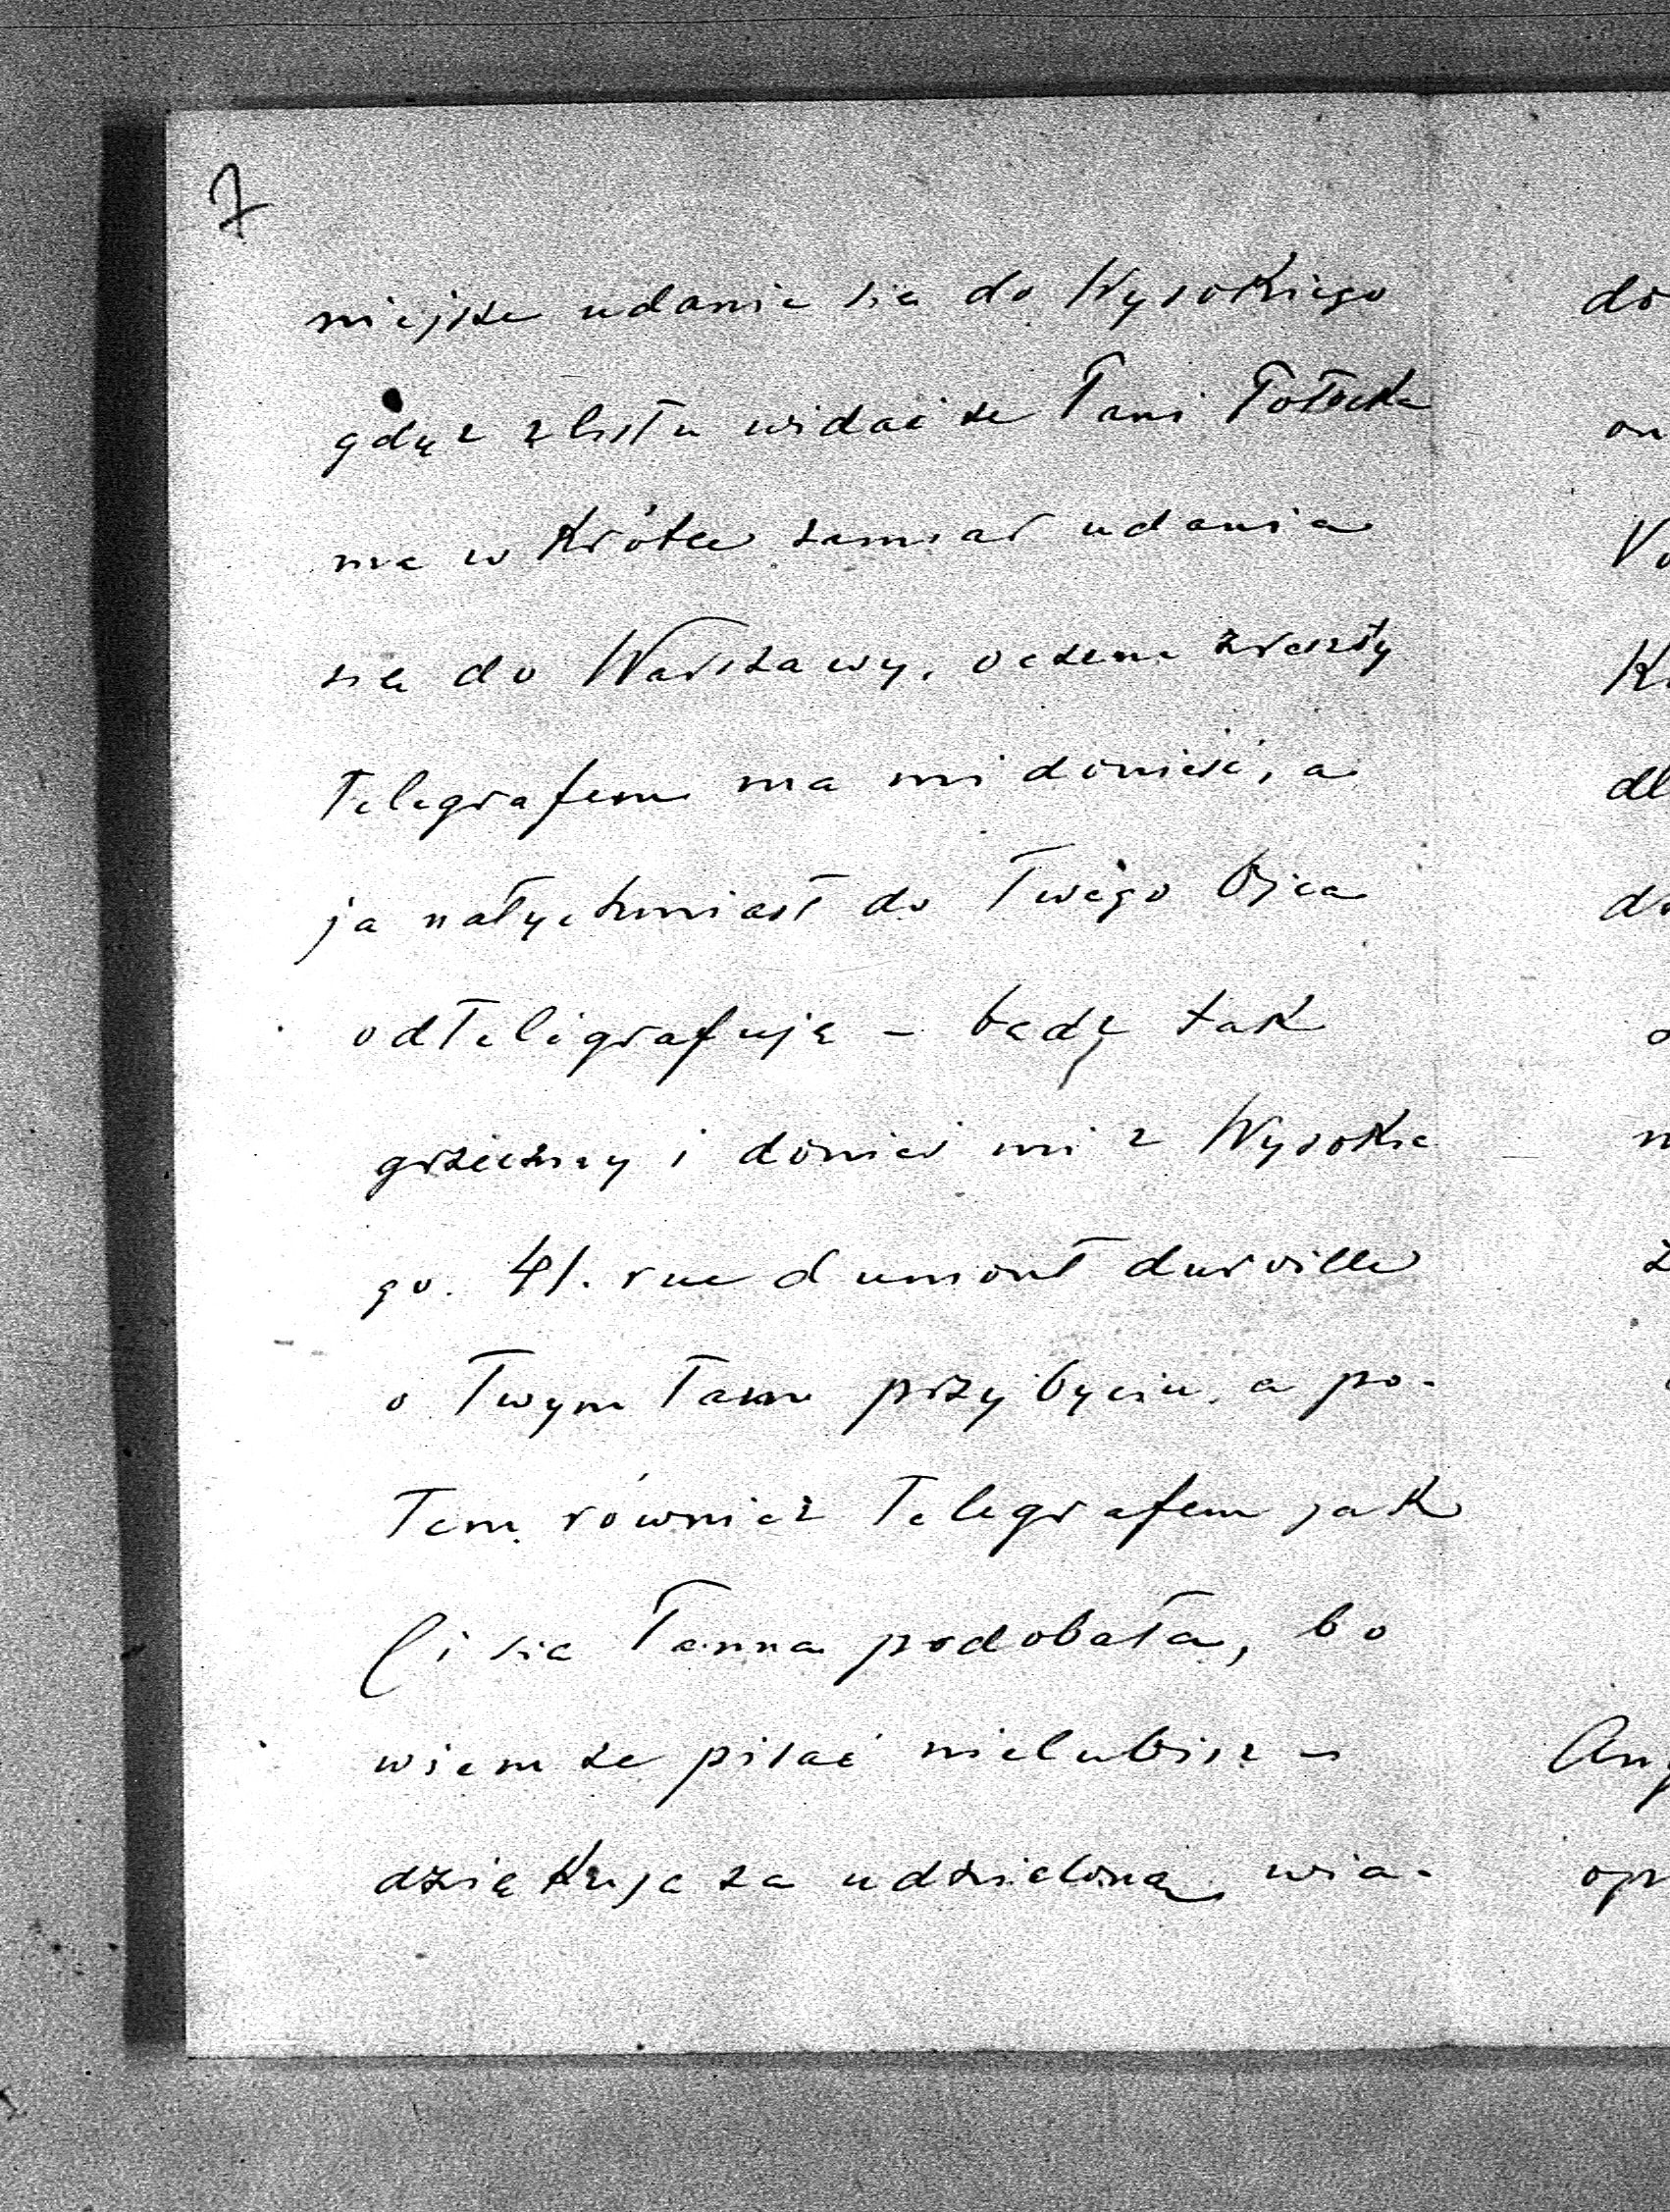 7
niejsze udanie się do Wysokiego
gdyż z listu widać że Pani Potocka
ma w krótce zamiar udania
się do Warszawy, oczem zresztą
Telegrafem ma mi donieść, a
ja natychmiast do Twego Ojca
odtelegrafuję – bądź tak
grzeczny i donieś mi z Wysokie
go. 41. rue dumont durville
o Twym Tam przybyciu, a po-
Tem również Telegrafem jak
Ci się Panna podobała, bo
wiem że pisać nielubisz –
dziękuję za udzieloną wia-